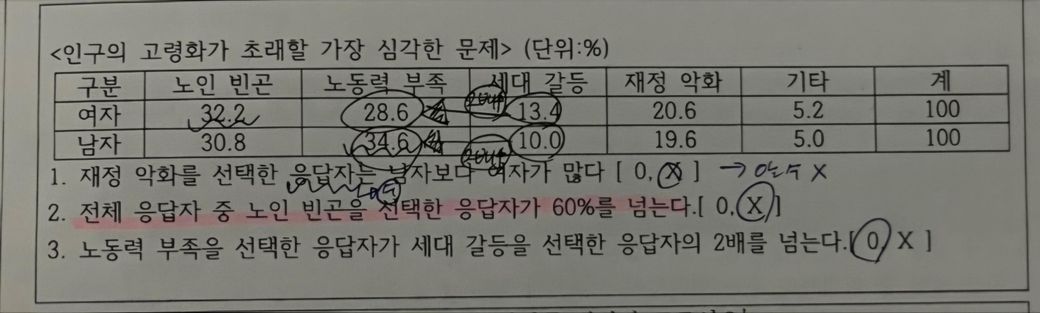 <인구의 고령화가 초래할 가장 심각한 문제> (단위:%)
구분 노인 빈곤 노동력 부족 세대 갈등 재정 악화 기타 계
여자 32.2 28.6 13.4 20.6 5.2 100
남자 30.8 34.6 10.0 19.6 5.0 100
1. 재정 악화를 선택한 응답자는 남자보다 여자가 많다 [ 0, X ] → 알수 X
2. 전체 응답자 중 노인 빈곤을 선택한 응답자가 60%를 넘는다.[ 0, X ]
3. 노동력 부족을 선택한 응답자가 세대 갈등을 선택한 응답자의 2배를 넘는다.[ 0, X ]